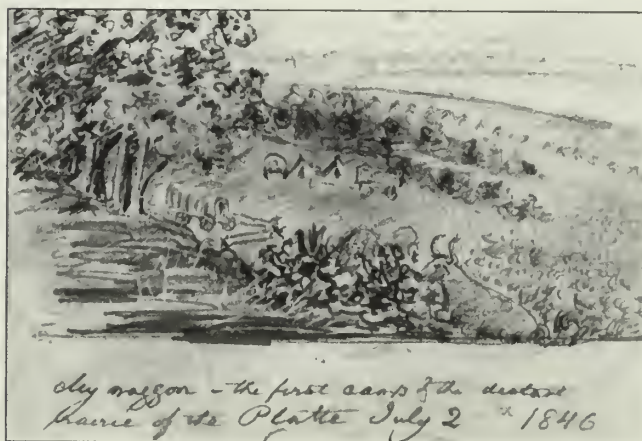 my waggon - the first camp of the distant
prairie of the Platte July 2 th 1846